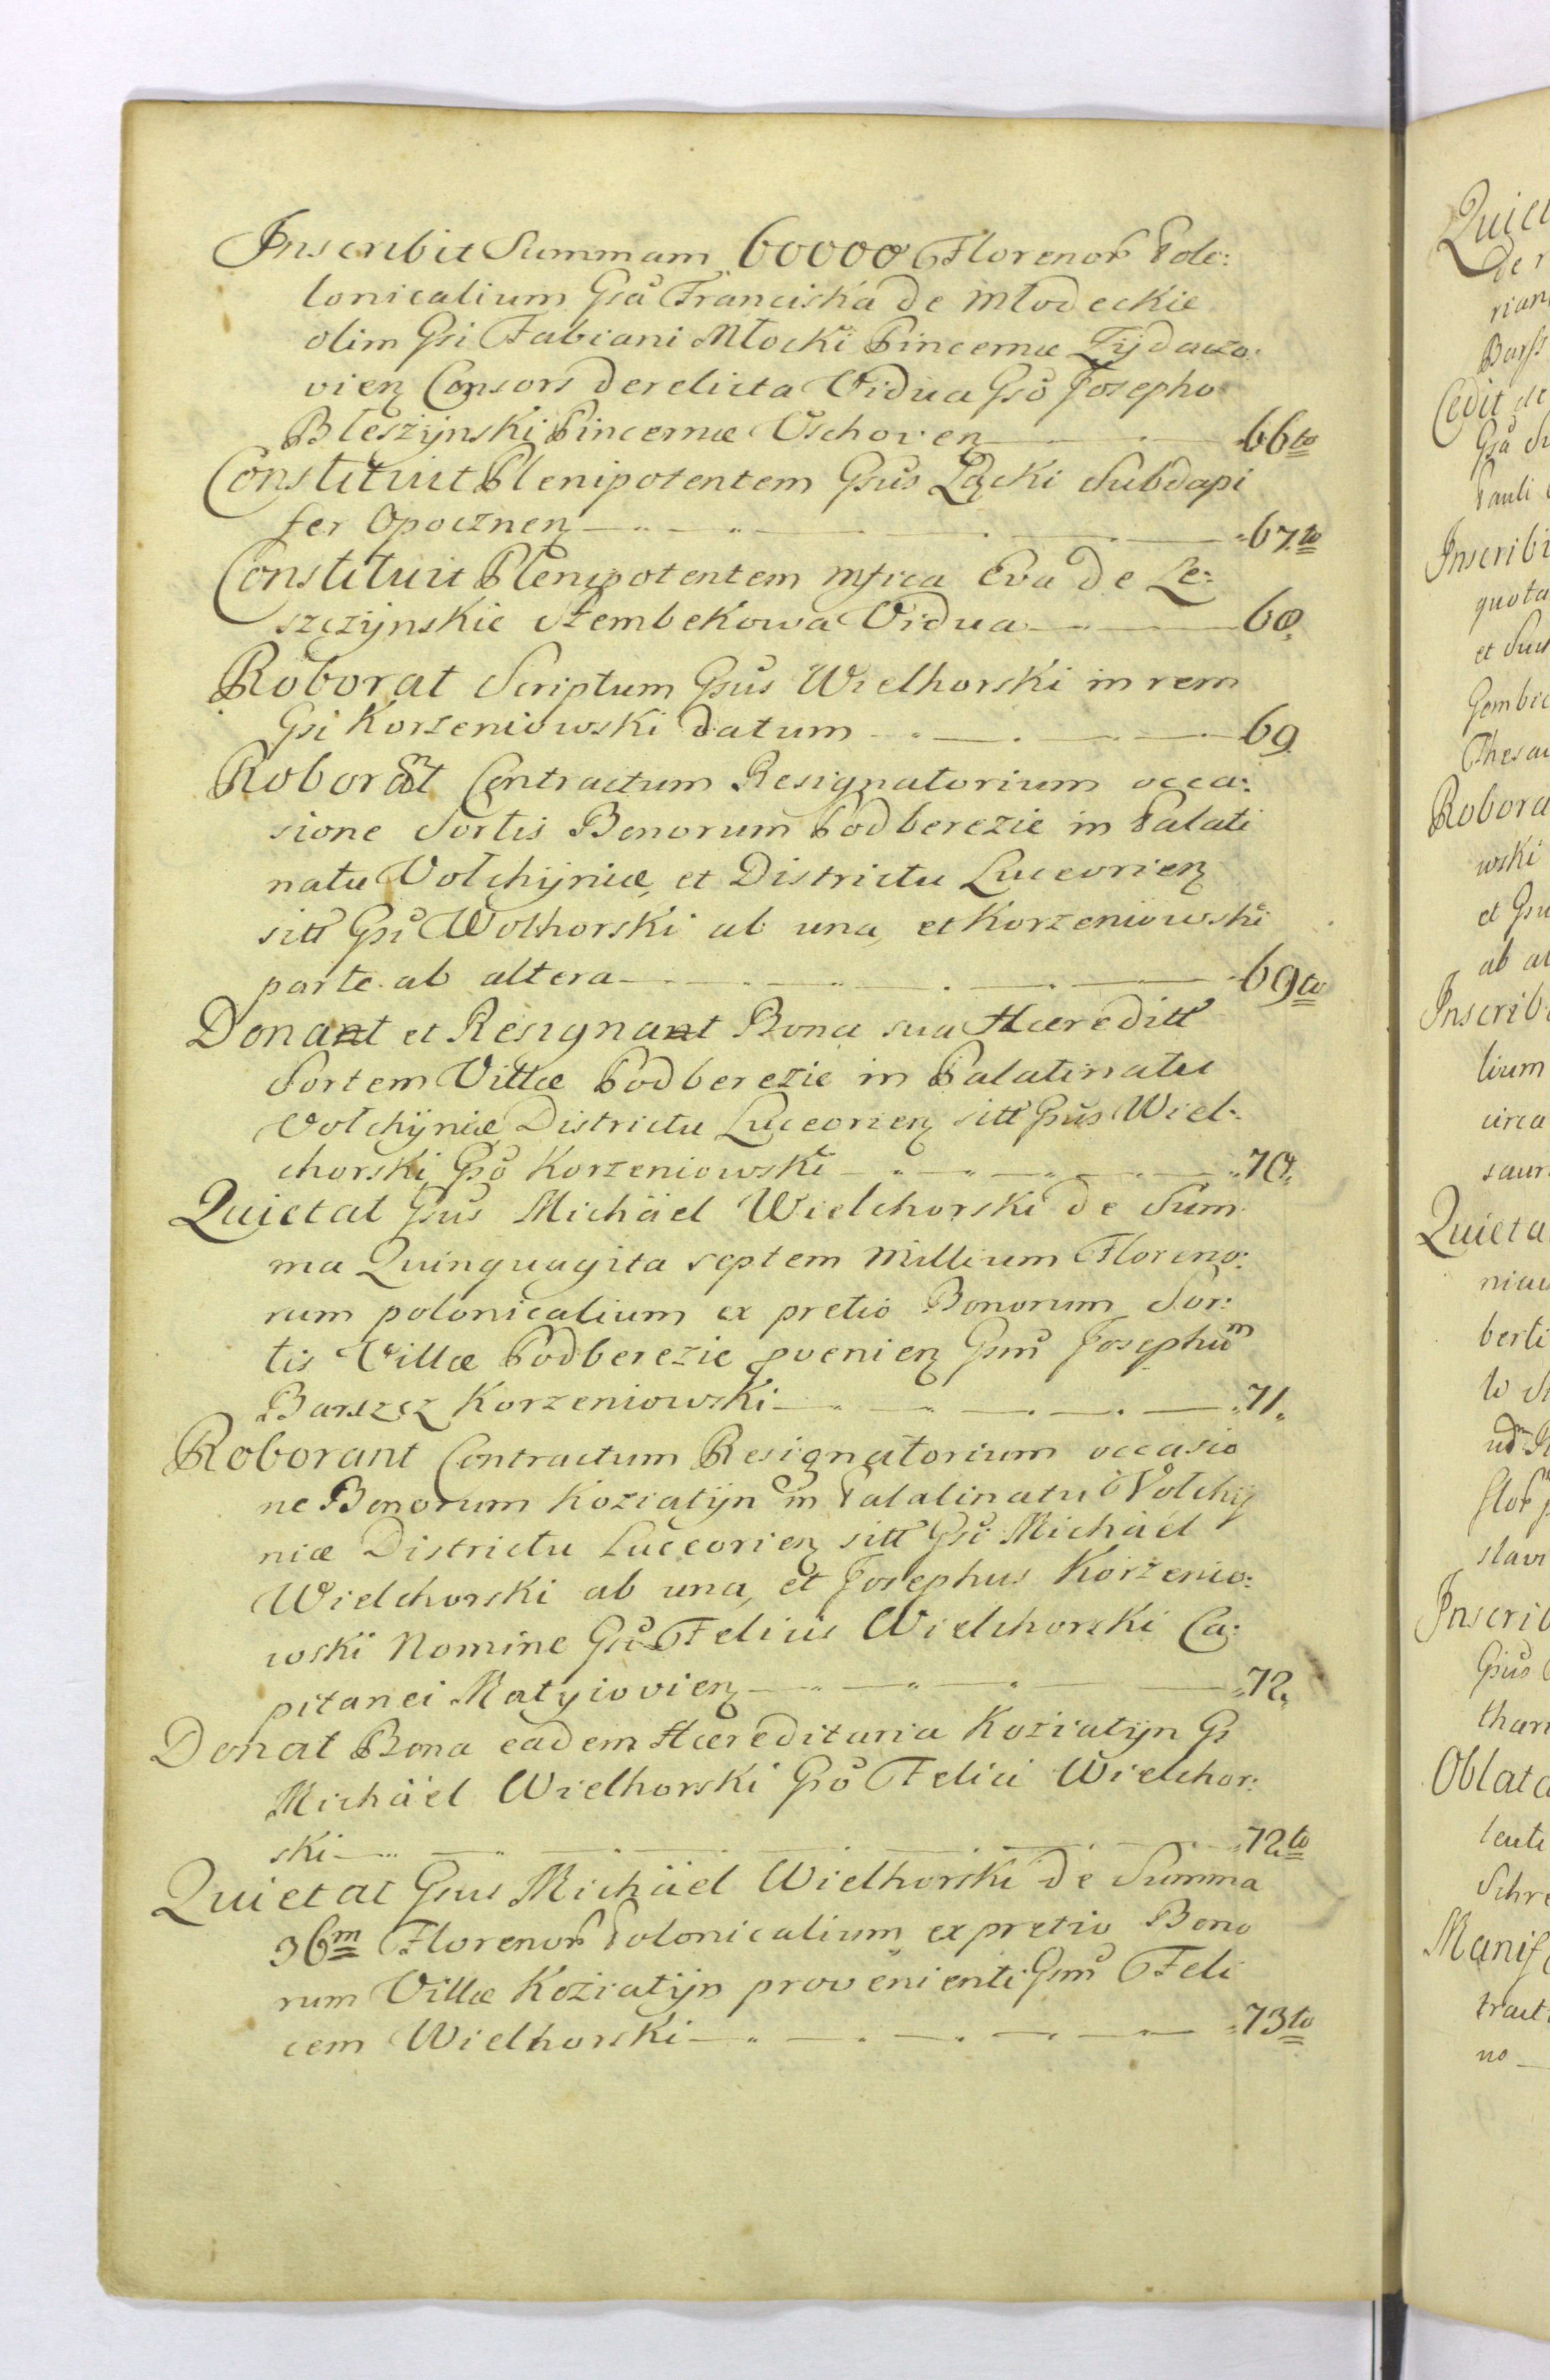 Inscribit Summam 60000 Florenor Polo:
lonicalium Gsa Franciska de Młodeckie
olim Gsi Fabiani Młocki Pincernæ Zÿdaczo:
vien Consors derelicta Vidua Gso Josepho
Bleszÿnski Pincernæ Wschoven 66to
Constituit Plenipotentem Gsus Łącki Subdapi
fer Opocznen 67.to
Constituit Plenipotentem Mfica Eva de Le:
szczÿnskie Stembekowa Vidua 68.
Roborat Scriptum Gsus Wielhorski in rem
Gsi Korzeniowski datum 69
Roborant Contractum Resignatorium occa:
sione Sortis Bonorum Podberezie in Palati
natu Volchÿniæ, et Districtu Luceorien
sitt Gsi Wolhorski ab una, et Korzeniowski
parte ab altera 69to
Donat et Resignat Bona sua Hæreditt
Sortem Villæ Podberezie in Palatinatu
Volchÿniæ Districtu Luceorien sitt Gsus Wiel:
chorski Gso Korzeniowski 70.
Quietat Gsus Michäel Wielchorski de Sum
ma Quinquagita septem Millium Floreno:
rum polonicalium ex pretio Bonorum Sor:
tis Villæ Podberezie pvenien Gsm Josephum
Barszcz Korzeniowski 71.
Roborant Contractum Resignatorium occasio
ne Bonorum Koziatÿn in Palatinatu Volchÿ
niæ Districtu Luceorien sitt Gsi Michäel
Wielchorski ab una, et Josephus Korzenio:
wski Nomine Gsi Felicis Wielchorski Ca:
pitanei Matyiovien 72.
Donat Bona eadem Hæreditaria Koziatÿn Gs
Michäel Wielhorski Gso Felici Wielchor:
ski 72to
Quietat Gsus Michäel Wielhorski de Summa
36m Florenor Polonicalium ex pretio Bono
rum Villæ Koziatÿn provenienti Gsm Feli
cem Wielhorski 73to